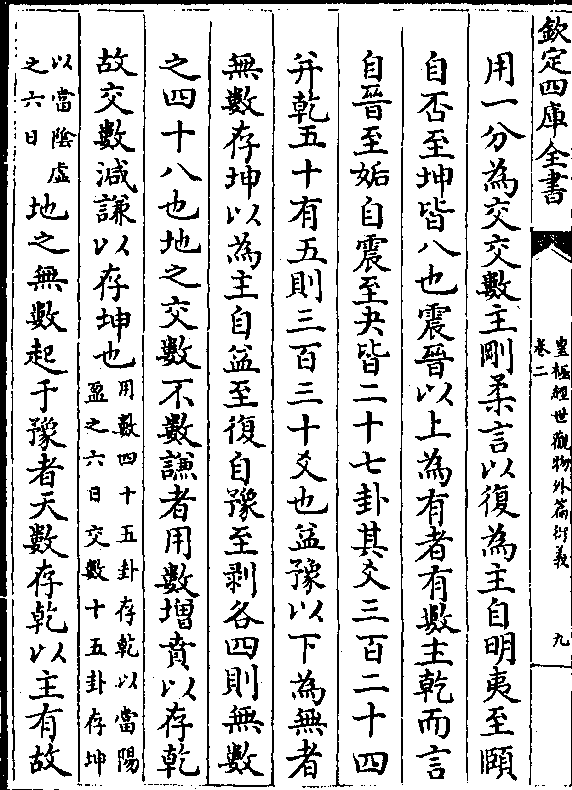 欽定四庫全書
皇極經世觀物外篇衍義
卷二
九
用一分為交交數主剛柔言以復為主自明夷至頤
自否至坤皆八也震晉以上為有者有數主乾而言
自晉至姤自震至夬皆二十七卦其爻三百二十四
并乾五十有五則三百三十爻也益豫以下為無者
無數存坤以為主自益至復自豫至剥各四則無數
之四十八也地之交數不數謙者用數增賁以存乾
故交數減謙以存坤也用數四十五卦存乾以當陽
盈之六日交數十五卦存坤
以當陰虛
之六日地之無數起于豫者天數存乾以主有故